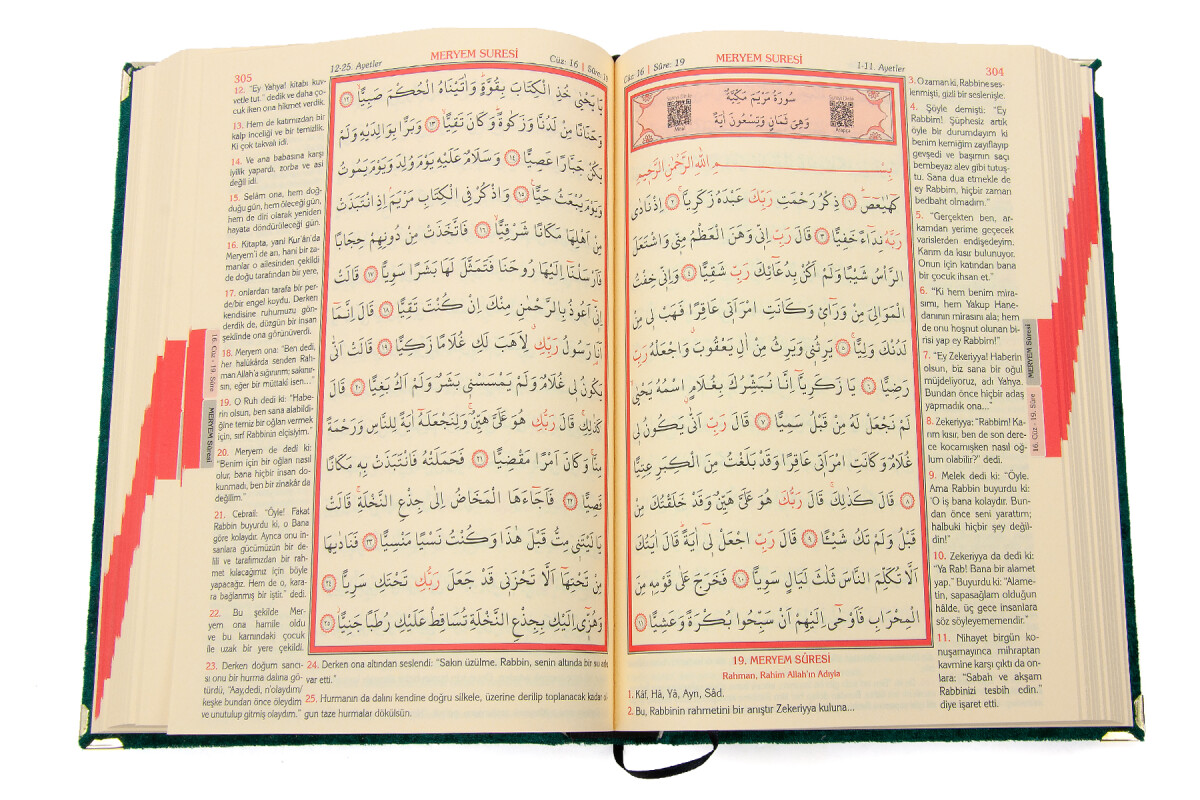 Cüz: 16 | Sûre: 19 MERYEM SURESİ 1-11. Ayetler 304
سُورَةُ مَرْيَمَ مَكِّيَّةٌ
وَهِيَ ثَمَانٍ وَتِسْعُونَ اٰيَةً
بِسْــــمِ اللّٰهِ الرَّحْمٰنِ الرَّح۪يمِ
كٓهٰيٰعٓصٓ ﴿١﴾ ذِكْرُ رَحْمَتِ رَبِّكَ عَبْدَهُ زَكَرِيَّا ﴿٢﴾ اِذْ نَادٰى
رَبَّهُ نِدَٓاءً خَفِيًّا ﴿٣﴾ قَالَ رَبِّ اِنّ۪ي وَهَنَ الْعَظْمُ مِنّ۪ي وَاشْتَعَلَ
الرَّأْسُ شَيْبًا وَلَمْ اَكُنْ بِدُعَٓائِكَ رَبِّ شَقِيًّا ﴿٤﴾ وَاِنّ۪ي خِفْتُ
الْمَوَالِيَ مِنْ وَرَٓاء۪ي وَكَانَتِ امْرَاَت۪ي عَاقِرًا فَهَبْ ل۪ي مِنْ
لَدُنْكَ وَلِيًّا ﴿٥﴾ يَرِثُن۪ي وَيَرِثُ مِنْ اٰلِ يَعْقُوبَ وَاجْعَلْهُ رَبِّ
رَضِيًّا ﴿٦﴾ يَا زَكَرِيَّٓا اِنَّا نُبَشِّرُكَ بِغُلَامٍ اسْمُهُ يَحْيٰى
لَمْ نَجْعَلْ لَهُ مِنْ قَبْلُ سَمِيًّا ﴿٧﴾ قَالَ رَبِّ اَنّٰى يَكُونُ ل۪ي
غُلَامٌ وَكَانَتِ امْرَاَت۪ي عَاقِرًا وَقَدْ بَلَغْتُ مِنَ الْكِبَرِ عِتِيًّا
﴿٨﴾ قَالَ كَذٰلِكَ قَالَ رَبُّكَ هُوَ عَلَيَّ هَيِّنٌ وَقَدْ خَلَقْتُكَ مِنْ
قَبْلُ وَلَمْ تَكُ شَيْـًٔا ﴿٩﴾ قَالَ رَبِّ اجْعَلْ ل۪ٓي اٰيَةً قَالَ اٰيَتُكَ
اَلَّا تُكَلِّمَ النَّاسَ ثَلٰثَ لَيَالٍ سَوِيًّا ﴿١٠﴾ فَخَرَجَ عَلٰى قَوْمِه۪ مِنَ
الْمِحْرَابِ فَاَوْحٰٓى اِلَيْهِمْ اَنْ سَبِّحُوا بُكْرَةً وَعَشِيًّا ﴿١١﴾
19. MERYEM SÛRESİ
Rahman, Rahîm Allah'ın Adıyla
1. Kâf, Hâ, Yâ, Ayn, Sâd.
2. Bu, Rabbinin rahmetini bir anıştır Zekeriyya kuluna...
3. O zaman ki, Rabbine ses-
lenmişti, gizli bir seslenişle.
4. Şöyle demişti: "Ey
Rabbim! Şüphesiz artık
öyle bir durumdayım ki
benim kemiğim zayıflayıp
gevşedi ve başımın saçı
bembeyaz alev gibi tutuş-
tu. Sana dua etmekle de
ey Rabbim, hiçbir zaman
bedbaht olmadım."
5. "Gerçekten ben, ar-
kamdan yerime geçecek
varislerden endişedeyim.
Karım da kısır bulunuyor.
Onun için katından bana
bir çocuk ihsan et."
6. "Ki hem benim mira-
sımı, hem Yakup Hane-
danının mirasını ala; hem
de onu hoşnut olunan bi-
risi yap ey Rabbim!"
7. "Ey Zekeriyya! Haberin
olsun, biz sana bir oğul
müjdeliyoruz, adı Yahya.
Bundan önce hiçbir adaş
yapmadık ona..."
8. Zekeriyya: "Rabbim! Ka-
rım kısır, ben de son dere-
ce kocamışken nasıl oğ-
lum olabilir?" dedi.
9. Melek dedi ki: "Öyle.
Ama Rabbin buyurdu ki:
'O iş bana kolaydır. Bun-
dan önce seni yarattım;
halbuki hiçbir şey değil-
din!"
10. Zekeriyya da dedi ki:
"Ya Rab! Bana bir alamet
yap." Buyurdu ki: "Alame-
tin, sapasağlam olduğun
hâlde, üç gece insanlara
söz söyleyememendir."
11. Nihayet birgün ko-
nuşamayınca mihraptan
kavmine karşı çıktı da on-
lara: "Sabah ve akşam
Rabbinizi tesbih edin."
diye işaret etti.
MERYEM Sûresi
16. Cüz - 19. Sûre
305 12-25. Ayetler MERYEM SURESİ Cüz: 16 | Sûre: 19
يَا يَحْيٰى خُذِ الْكِتَابَ بِقُوَّةٍ وَاٰتَيْنَاهُ الْحُكْمَ صَبِيًّا ﴿١٢﴾
وَحَنَانًا مِنْ لَدُنَّا وَزَكٰوةً وَكَانَ تَقِيًّا ﴿١٣﴾ وَبَرًّا بِوَالِدَيْهِ وَلَمْ
يَكُنْ جَبَّارًا عَصِيًّا ﴿١٤﴾ وَسَلَامٌ عَلَيْهِ يَوْمَ وُلِدَ وَيَوْمَ يَمُوتُ
وَيَوْمَ يُبْعَثُ حَيًّا ﴿١٥﴾ وَاذْكُرْ فِي الْكِتَابِ مَرْيَمَ اِذِ انْتَبَذَتْ
مِنْ اَهْلِهَا مَكَانًا شَرْقِيًّا ﴿١٦﴾ فَاتَّخَذَتْ مِنْ دُونِهِمْ حِجَابًا
فَاَرْسَلْنَٓا اِلَيْهَا رُوحَنَا فَتَمَثَّلَ لَهَا بَشَرًا سَوِيًّا ﴿١٧﴾ قَالَتْ
اِنّ۪ٓي اَعُوذُ بِالرَّحْمٰنِ مِنْكَ اِنْ كُنْتَ تَقِيًّا ﴿١٨﴾ قَالَ اِنَّمَٓا
اَنَا رَسُولُ رَبِّكِ لِاَهَبَ لَكِ غُلَامًا زَكِيًّا ﴿١٩﴾ قَالَتْ اَنّٰى
يَكُونُ ل۪ي غُلَامٌ وَلَمْ يَمْسَسْن۪ي بَشَرٌ وَلَمْ اَكُ بَغِيًّا ﴿٢٠﴾ قَالَ
كَذٰلِكِ قَالَ رَبُّكِ هُوَ عَلَيَّ هَيِّنٌ وَلِنَجْعَلَهُٓ اٰيَةً لِلنَّاسِ وَرَحْمَةً
مِنَّا وَكَانَ اَمْرًا مَقْضِيًّا ﴿٢١﴾ فَحَمَلَتْهُ فَانْتَبَذَتْ بِه۪ مَكَانًا
قَصِيًّا ﴿٢٢﴾ فَاَجَٓاءَهَا الْمَخَاضُ اِلٰى جِذْعِ النَّخْلَةِ قَالَتْ
يَا لَيْتَن۪ي مِتُّ قَبْلَ هٰذَا وَكُنْتُ نَسْيًا مَنْسِيًّا ﴿٢٣﴾ فَنَادٰيهَا
مِنْ تَحْتِهَٓا اَلَّا تَحْزَن۪ي قَدْ جَعَلَ رَبُّكِ تَحْتَكِ سَرِيًّا ﴿٢٤﴾
وَهُزّ۪ٓي اِلَيْكِ بِجِذْعِ النَّخْلَةِ تُسَاقِطْ عَلَيْكِ رُطَبًا جَنِيًّا ﴿٢٥﴾
12. "Ey Yahya! kitabı kuv-
vetle tut." dedik ve daha ço-
cuk iken ona hikmet verdik.
13. Hem de katımızdan bir
kalp inceliği ve bir temizlik.
Ki çok takvalı idi.
14. Ve ana babasına karşı
iyilik yapardı, zorba ve asi
değil idi.
15. Selâm ona, hem doğ-
duğu gün, hem öleceği gün,
hem de diri olarak yeniden
hayata döndürüleceği gün.
16. Kitapta, yani Kur'ân'da
Meryem'i de an, hani bir za-
manlar o ailesinden çekildi
de doğu tarafından bir yere,
17. onlardan tarafa bir per-
de/bir engel koydu. Derken
kendisine ruhumuzu gön-
derdik de, düzgün bir insan
şeklinde ona görünüverdi.
18. Meryem ona: "Ben dedi,
her halükârda senden Rah-
man Allah'a sığınırım; sakınır-
sın, eğer bir müttaki isen..."
19. O Ruh dedi ki: "Habe-
rin olsun, ben sana alabildi-
ğine temiz bir oğlan vermek
için, sırf Rabbinin elçisiyim."
20. Meryem de dedi ki:
"Benim için bir oğlan nasıl
olur, bana hiçbir insan do-
kunmadı, ben bir zinakâr da
değilim."
21. Cebrail: "Öyle! Fakat
Rabbin buyurdu ki, o Bana
göre kolaydır. Ayrıca onu in-
sanlara gücümüzün bir de-
lili ve tarafımızdan bir rah-
met kılacağımız için böyle
yapacağız. Hem de o, kara-
ra bağlanmış bir iştir." dedi.
22. Bu şekilde Mer-
yem ona hamile oldu
ve bu karnındaki çocuk
ile uzak bir yere çekildi.
23. Derken doğum sancı-
sı onu bir hurma dalına gö-
türdü, "Aay,dedi, n'olaydım/
keşke bundan önce öleydim
ve unutulup gitmiş olaydım."
24. Derken ona altından seslendi: "Sakın üzülme. Rabbin, senin altında bir su
var etti."
25. Hurmanın dalını kendine doğru silkele, üzerine derilip toplanacak kadar ol-
gun taze hurmalar dökülsün.
16. Cüz - 19. Sûre
MERYEM Sûresi